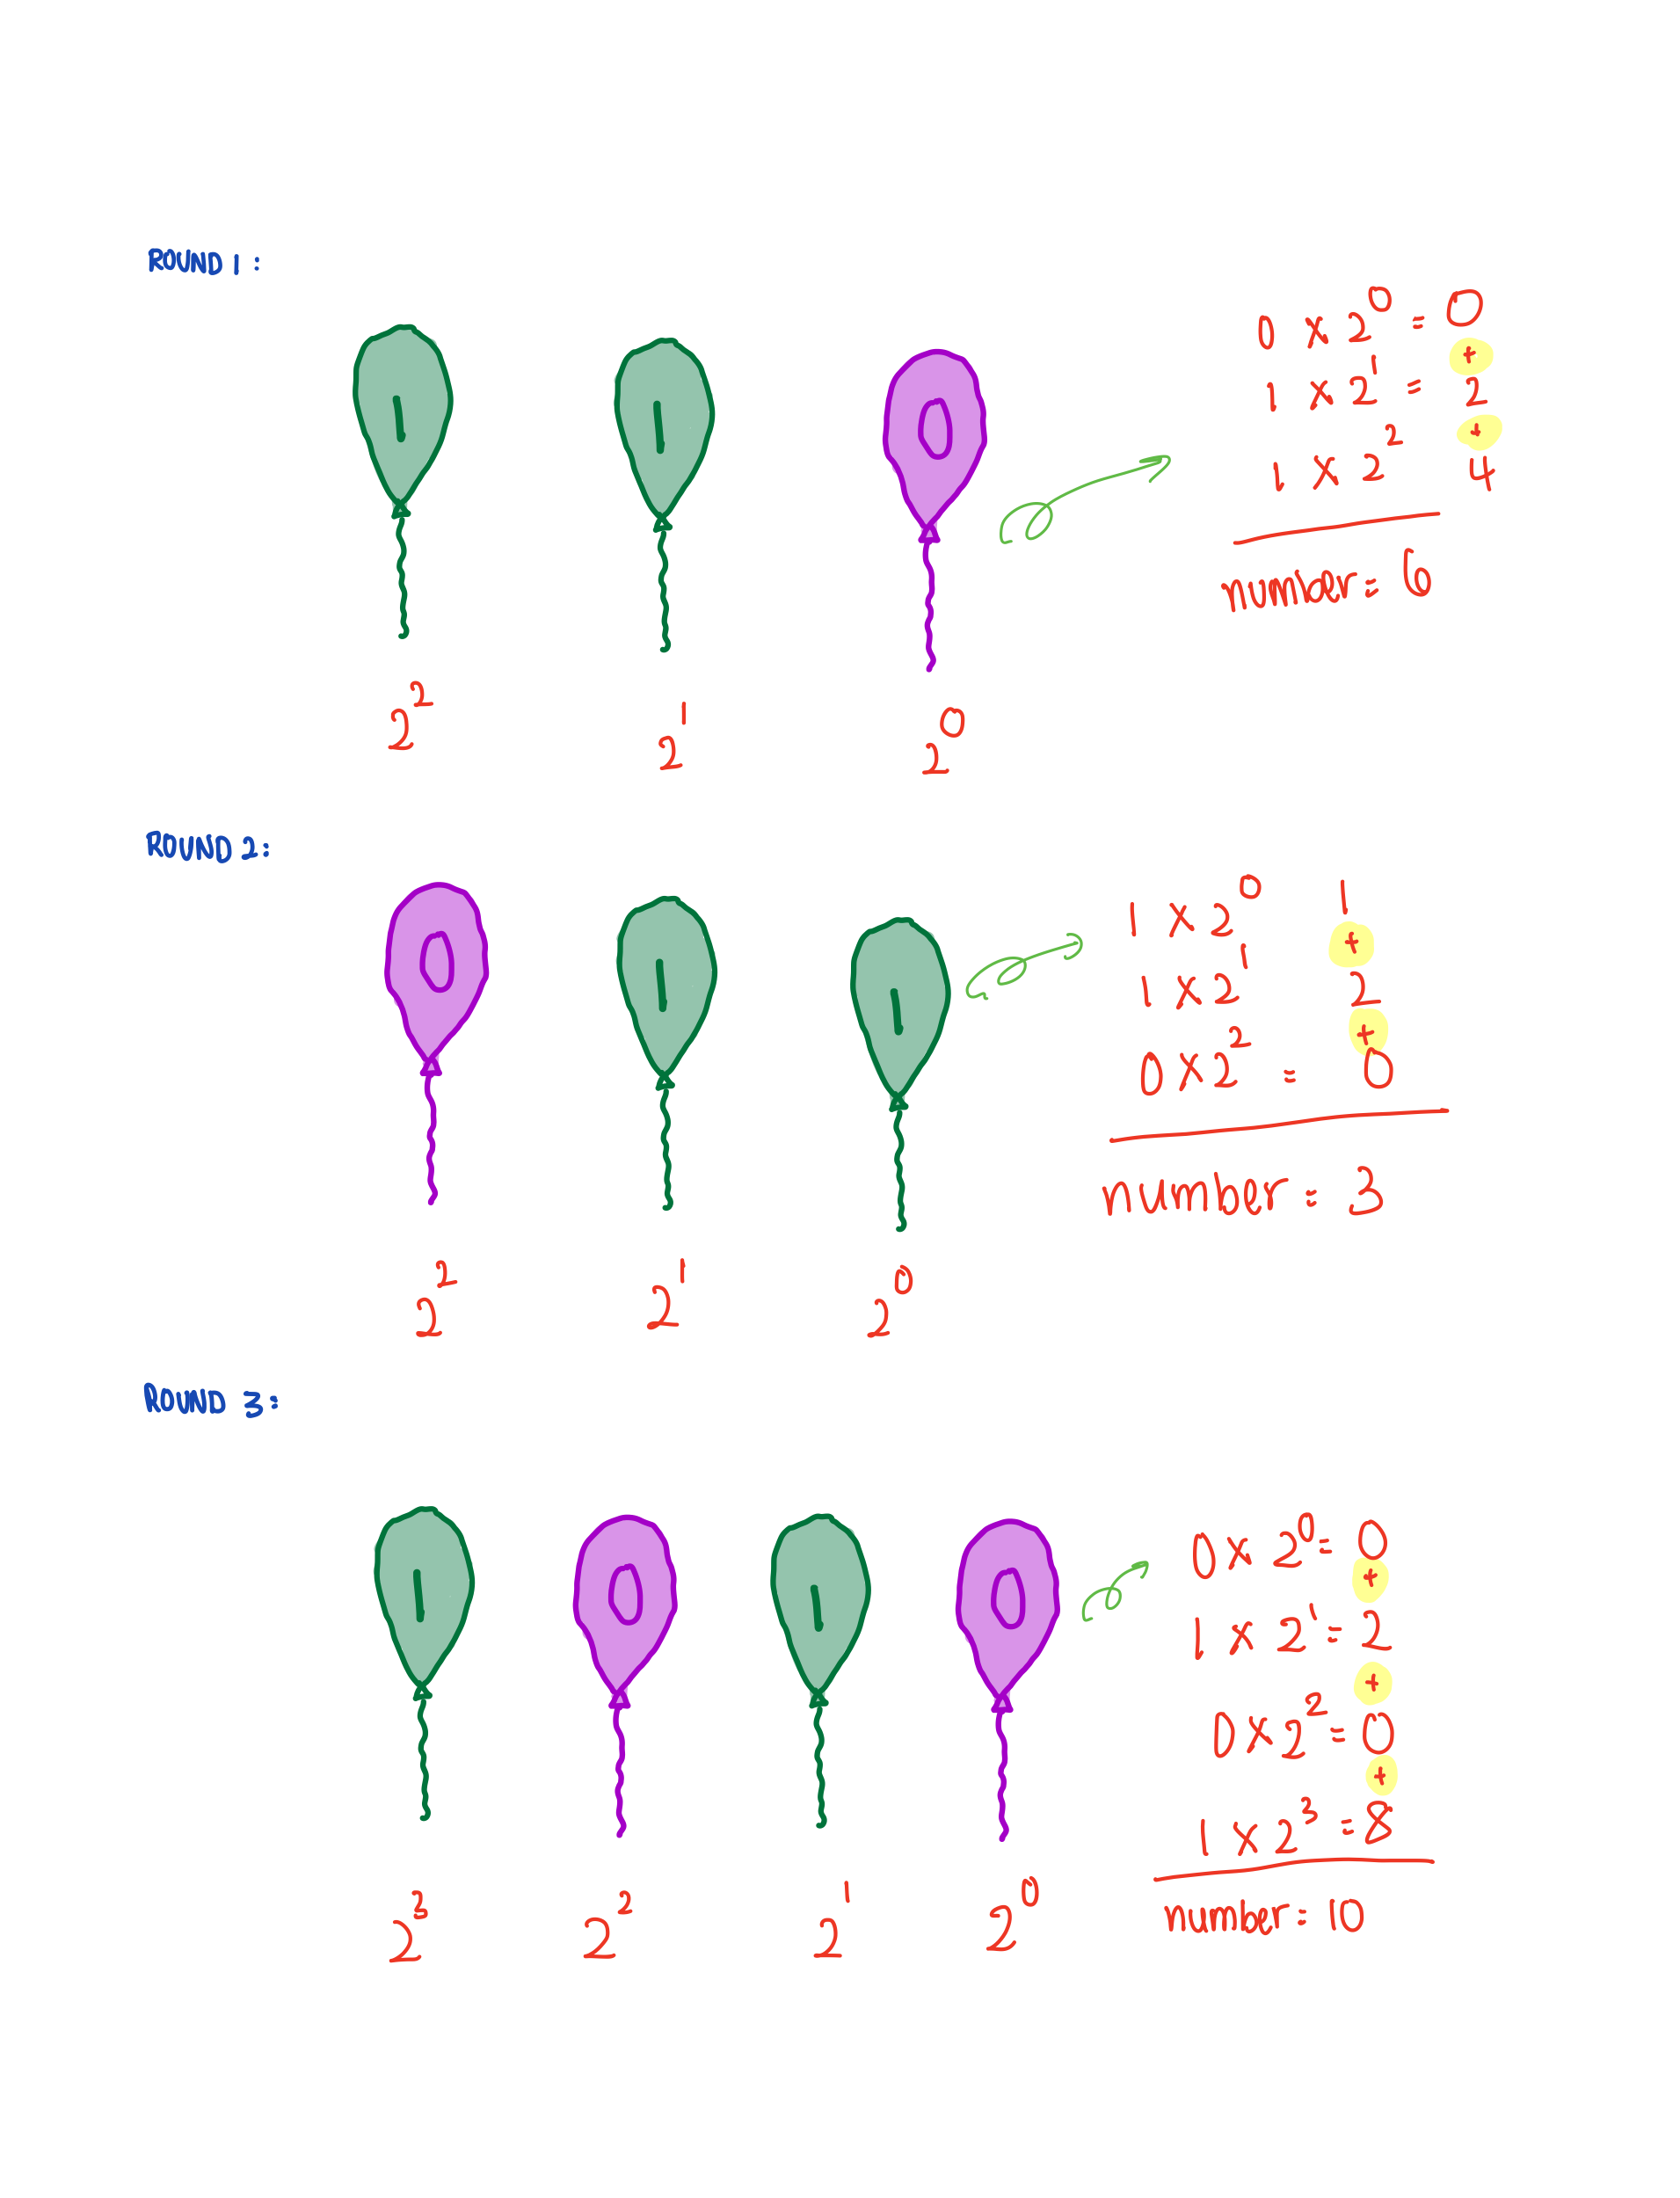 ROUND 1:
1 1 0
2² 2¹ 2⁰
0 x 2⁰ = 0
+
1 x 2¹ = 2
+
1 x 2² 4
number = 6
ROUND 2:
0 1 1
2² 2¹ 2⁰
1 x 2⁰ 1
+
1 x 2¹ 2
+
0 x 2² = 0
number = 3
ROUND 3:
1 0 1 0
2³ 2² 2¹ 2⁰
0 x 2⁰ = 0
+
1 x 2¹ = 2
+
0 x 2² = 0
+
1 x 2³ = 8
number = 10